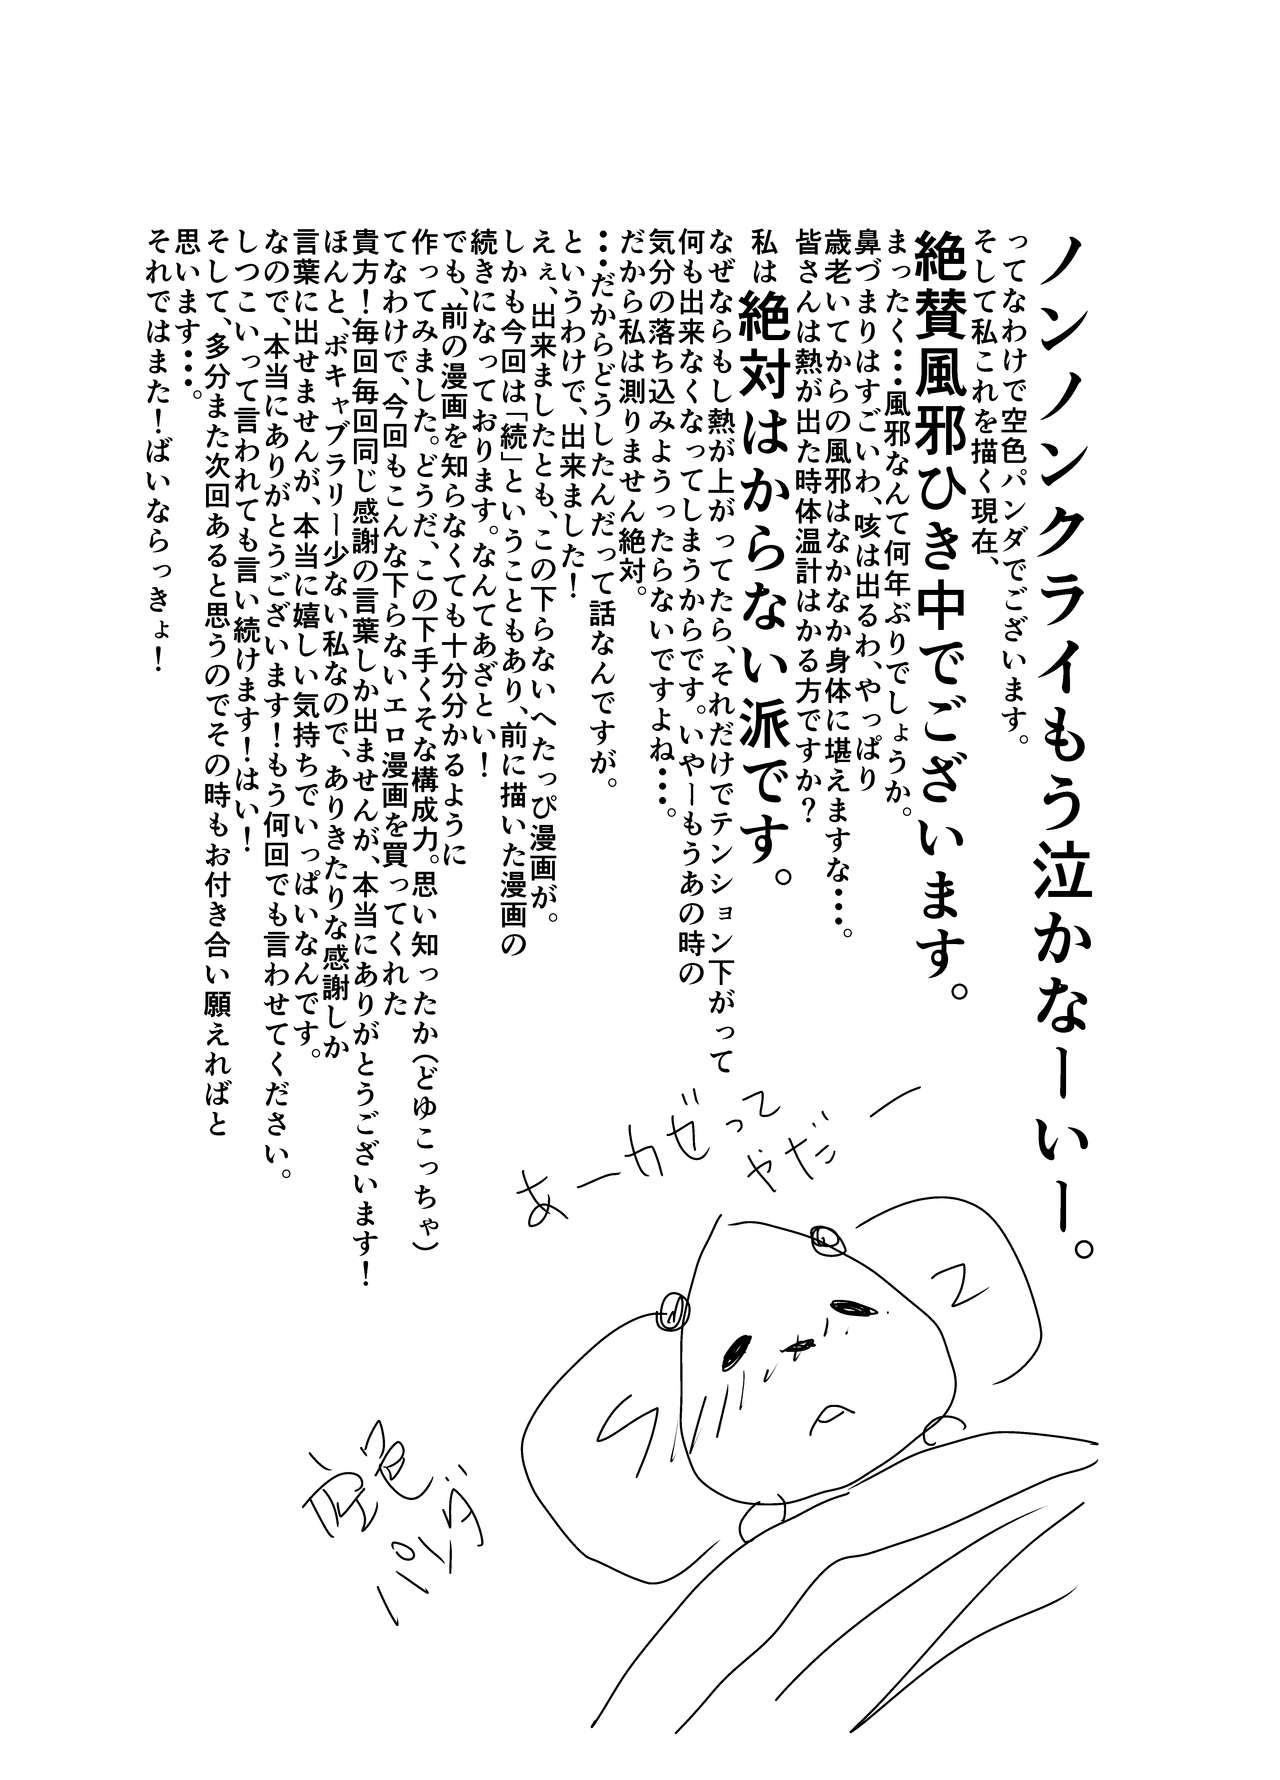 ノンノンクライもう泣かなーいー。
ってなわけで空色パンダでございます。
そして私これを描く現在、
絶賛風邪ひき中でございます。
まったく・・・風邪なんて何年ぶりでしょうか。
鼻づまりはすごいわ、咳は出るわ、やっぱり
歳老いてからの風邪はなかなか身体に堪えますな・・・。
皆さんは熱が出た時体温計はかる方ですか？
私は絶対はからない派です。
なぜならもし熱が上がってたら、それだけでテンション下がって
何も出来なくなってしまうからです。いやーもうあの時の
気分の落ち込みようったらないですよね・・・。
だから私は測りません絶対。
・・・だからどうしたんだって話なんですが。
というわけで、出来ました！
えぇ、出来ましたとも、この下らないへたっぴ漫画が。
しかも今回は「続」ということもあり、前に描いた漫画の
続きになっております。なんてあざとい！
でも、前の漫画を知らなくても十分分かるように
作ってみました。どうだ、この下手くそな構成力。思い知ったか（どゆこっちゃ）
てなわけで、今回もこんな下らないエロ漫画を買ってくれた
貴方！毎回毎回同じ感謝の言葉しか出ませんが、本当にありがとうございます！
ほんと、ボキャブラリー少ない私なので、ありきたりな感謝しか
言葉に出せませんが、本当に嬉しい気持ちでいっぱいなんです。
なので、本当にありがとうございます！もう何回でも言わせてください。
しつこいって言われても言い続けます！はい！
そして、多分また次回あると思うのでその時もお付き合い願えればと
思います・・・。
それではまた！ばいならっきょ！
あーかぜって
やだー
空色
パンダ